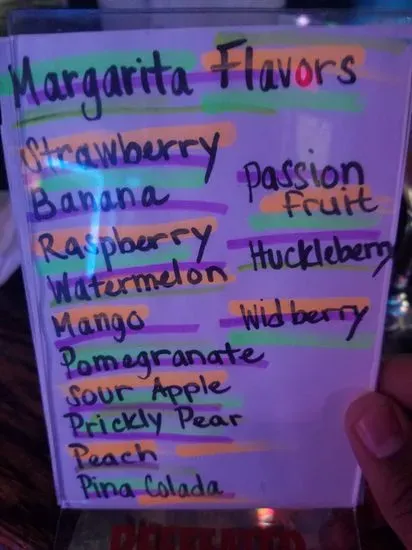 Margarita Flavors
Strawberry
Banana
Raspberry
Watermelon
Mango
Pomegranate
Sour Apple
Prickly Pear
Peach
Pina Colada
Passion
Fruit
Huckleberry
Widberry